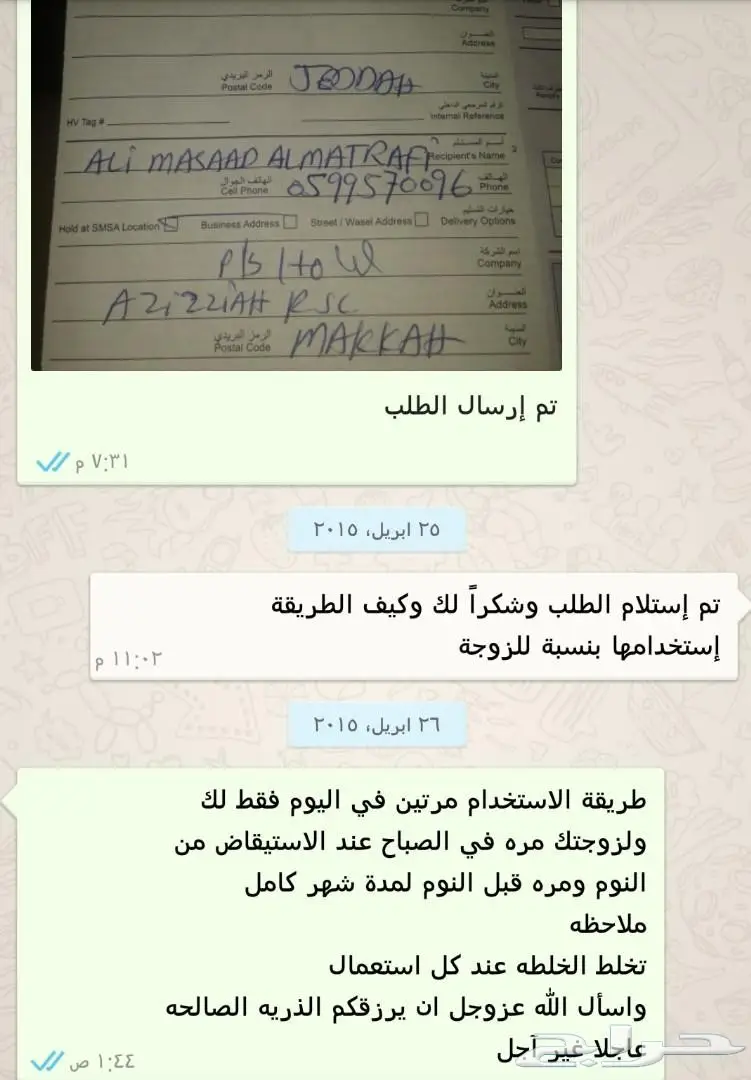 Company
العنوان
Address
الرمز البريدي
Postal Code
JEDDAH
المدينة
City
HV Tag #
الرقم المرجعي الداخلي
Internal Reference
اسم المستلم
ALI MASAAD ALMATRAFI
Recipient's Name
الهاتف الجوال
Cell Phone
0599570096
الهاتف
Phone
خيارات التسليم
Hold at SMSA Location
Business Address
Street / Wasel Address
Delivery Options
اسم الشركة
Company
العنوان
AZIZZIAH RSC
Address
الرمز البريدي
Postal Code
MAKKAH
المدينة
City
تم إرسال الطلب
٧:٣١ م
٢٥ ابريل، ٢٠١٥
تم إستلام الطلب وشكراً لك وكيف الطريقة
إستخدامها بنسبة للزوجة
١١:٠٢ م
٢٦ ابريل، ٢٠١٥
طريقة الاستخدام مرتين في اليوم فقط لك
ولزوجتك مره في الصباح عند الاستيقاض من
النوم ومره قبل النوم لمدة شهر كامل
ملاحظه
تخلط الخلطه عند كل استعمال
واسأل الله عزوجل ان يرزقكم الذريه الصالحه
عاجلا غير آجل
١:٤٤ ص
حراج